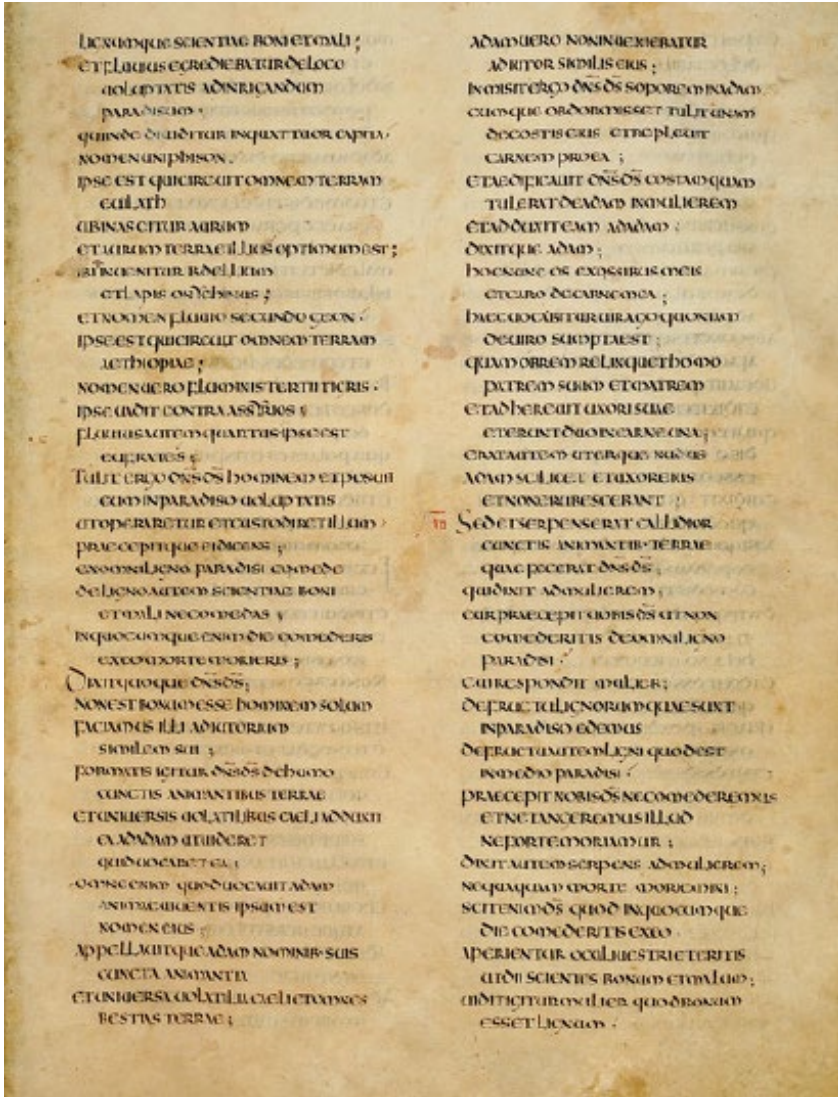 LIGNUMQUE SCIENTIAE BONI ET MALI ;
ET FLUUIUS EGREDIEBATUR DE LOCO
UOLUPTATIS AD INRIGANDUM
PARADISUM ·
QUI INDE DIUIDITUR IN QUATTUOR CAPITA ·
NOMEN UNI PHISON .
IPSE EST QUI CIRCUIT OMNEM TERRAM
EUILATH
UBI NASCITUR AURUM
ET AURUM TERRAE ILLIUS OPTIMUM EST ;
IBI INUENITUR BDELLIUM
ET LAPIS ONYCHINUS ;
ET NOMEN FLUUIO SECUNDO GEON ·
IPSE EST QUI CIRCUIT OMNEM TERRAM
AETHIOPIAE ;
NOMEN UERO FLUMINIS TERTII TIGRIS ·
IPSE UADIT CONTRA ASSYRIOS ;
FLUUIUS AUTEM QUARTUS IPSE EST
EUFRATES ;
TULIT ERGO DNS DS HOMINEM ET POSUIT
EUM IN PARADISO UOLUPTATIS
UT OPERARETUR ET CUSTODIRET ILLUM ·
PRAECEPITQUE EI DICENS ;
EX OMNI LIGNO PARADISI COMEDE
DE LIGNO AUTEM SCIENTIAE BONI
ET MALI NE COMEDAS ;
IN QUOCUMQUE ENIM DIE COMEDERIS
EX EO MORTE MORIERIS ;
DIXIT QUOQUE DNS DS ;
NON EST BONUM ESSE HOMINEM SOLUM
FACIAMUS ILLI ADIUTORIUM
SIMILEM SUI ;
FORMATIS IGITUR DNS DS DE HUMO
CUNCTIS ANIMANTIBUS TERRAE
ET UNIUERSIS UOLATILIBUS CAELI ADDUXIT
EA AD ADAM UT UIDERET
QUID UOCARET EA ;
OMNE ENIM QUOD UOCAUIT ADAM
ANIMAE UIUENTIS IPSUM EST
NOMEN EIUS ;
APPELLAUITQUE ADAM NOMINIB· SUIS
CUNCTA ANIMANTIA
ET UNIUERSA UOLATILIA CAELI ET OMNES
BESTIAS TERRAE ;
ADAM UERO NON INUENIEBATUR
ADIUTOR SIMILIS EIUS ;
INMISIT ERGO DNS DS SOPOREM IN ADAM
CUMQUE OBDORMISSET TULIT UNAM
DE COSTIS EIUS ET REPLEUIT
CARNEM PRO EA ;
ET AEDIFICAUIT DNS DS COSTAM QUAM
TULERAT DE ADAM IN MULIEREM
ET ADDUXIT EAM AD ADAM ·
DIXITQUE ADAM ;
HOC NUNC OS EX OSSIBUS MEIS
ET CARO DE CARNE MEA ;
HAEC UOCABITUR UIRAGO QUONIAM
DE UIRO SUMPTA EST ;
QUAM OBREM RELINQUET HOMO
PATREM SUUM ET MATREM
ET ADHEREBIT UXORI SUAE
ET ERUNT DUO IN CARNE UNA ;
ERAT AUTEM UTERQUE NUDUS
ADAM SCILICET ET UXOR EIUS
ET NON ERUBESCEBANT ;
VII SED ET SERPENS ERAT CALLIDIOR
CUNCTIS ANIMANTIB· TERRAE
QUAE FECERAT DNS DS ;
QUI DIXIT AD MULIEREM ;
CUR PRAECEPIT UOBIS DS UT NON
COMEDERITIS DE OMNI LIGNO
PARADISI ·
CUI RESPONDIT MULIER ;
DE FRUCTU LIGNORUM QUAE SUNT
IN PARADISO EDEMUS
DE FRUCTU AUTEM LIGNI QUOD EST
IN MEDIO PARADISI ·
PRAECEPIT NOBIS DS NE COMEDEREMUS
ET NE TANGEREMUS ILLUD
NE FORTE MORIAMUR ;
DIXIT AUTEM SERPENS AD MULIEREM ;
NEQUAQUAM MORTE MORIEMINI ;
SCIT ENIM DS QUOD IN QUOCUMQUE
DIE COMEDERITIS EX EO ·
APERIENTUR OCULI UESTRI ET ERITIS
UT DII SCIENTES BONUM ET MALUM ;
UIDIT IGITUR MULIER QUOD BONUM
ESSET LIGNUM ·